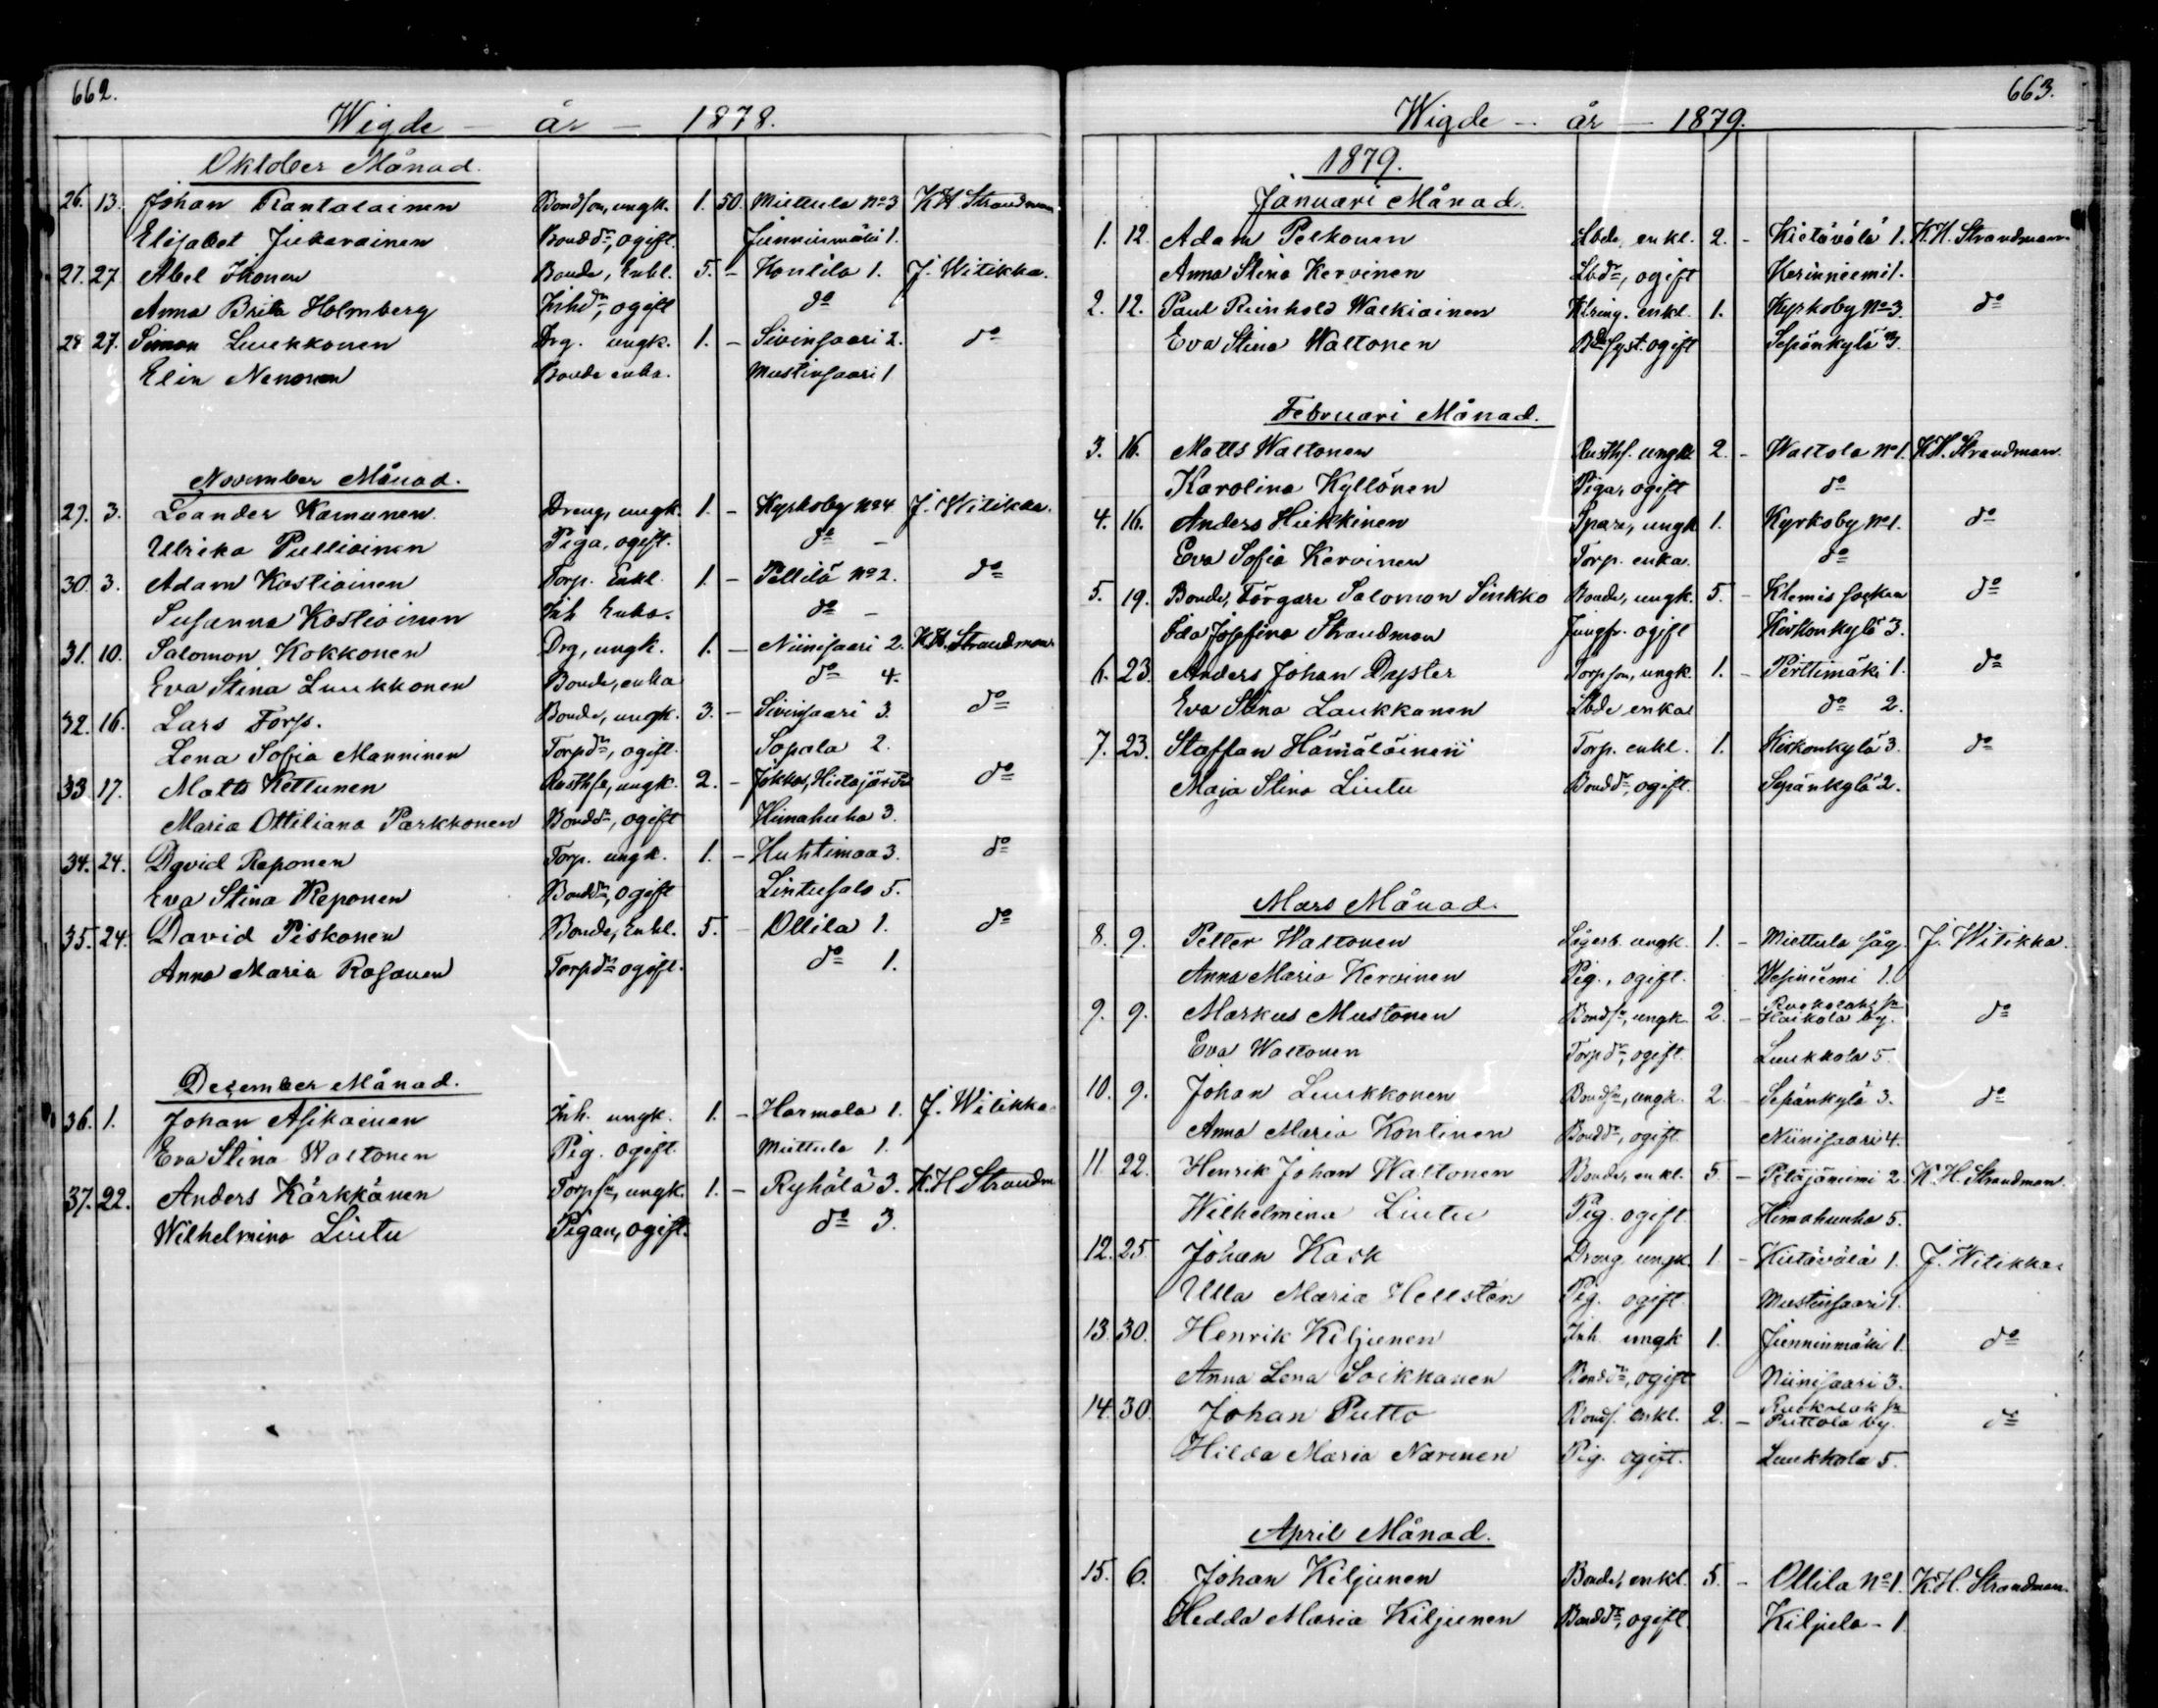 662.
Wigde — år — 1878.
Oktober Månad.
26. 13. Johan Rantalainen Bondson, ungk. 1. 50. Miettula No 3 K.H. Strandman
Elisabet Jukarainen Bonddr, ogift. Junninmäki 1.
27. 27 Abel Ikonen Bonde, Enkl. 5. – Kontila 1. J. Witikka.
Anna Brita Holmberg Inhdr, ogift do
28 27. Simon Luukkonen Drg. ungk. 1. – Sivinsaari 2. do
Elin Nenonen Bonde enka. Mustinsaari 1
November Månad.
29. 3. Leander Kamunen. Dreng, ungk. 1. – Kyrkoby No 4 J. Witikka.
Ulrika Pulliainen Piga, ogift. do –
30. 3. Adam Kostiainen Torp. Enkl. 1. – Pellilä No 2. do
Susanna Kostiainen Inh Enka. do –
31. 10. Salomon Kokkonen Drg, ungk. 1. – Niinisaari 2. K.H. Strandman
Eva Stina Luukkonen Bonde, enka do 4.
32. 16. Lars Torp. Bonde, ungk. 3. – Sivinsaari 3. do
Lena Sofia Manninen Torpdr, ogift. Sopala 2.
33 17. Matts Kettunen Rusthsn, ungk. 2. – Jokkas, Hietajärvi do
Maria Ottiliana Parkkonen Bonddr, ogift Himahuha 3.
34. 24. David Reponen Torp. ungk. 1. – Huhtimaa 3. do
Eva Stina Reponen Bonddr, ogift Lintusalo 5.
35. 24. David Piskonen Bonde, Enkl. 5. – Ollila 1. do
Anna Maria Rosanen Torpdr ogift. do 1.
December Månad.
36. 1. Johan Asikainen Inh. ungk. 1. – Harmala 1. J. Witikka
Eva Stina Waltonen Pig. ogift. Miettula 1.
37. 22. Anders Kärkkänen Torpsn, ungk. 1. – Ryhälä 3. K.H Strandm
Wilhelmina Liutu Pigan, ogift. do 3.
663.
Wigde – år — 1879.
1879.
Januari Månad.
1. 12. Adam Pelkonen Lbde, enkl. 2. – Kietävälä 1. K.H. Strandman
Anna Stina Kervinen Lbdr, ogift Kerinniemi 1.
2. 12. Paul Reinhold Walkiainen enkl. 1. Kyrkoby No 3. do
Eva Stina Waltonen syst. ogift Sepänkylä 3.
Februari Månad.
3. 16. Matts Waltonen Rusths. ungk 2. – Waltola No 1. K.H. Strandman
Karolina Kyllönen Pigan, ogift do
4. 16. Anders Hiekkinen ungk 1. Kyrkoby No 1. do
Eva Sofia Kervinen Torp. enka. do
5. 19. Bonde, Färgare Salomon Sinkko Bonde, ungk. 5. – Klemis socken do
Ida Josefina Strandman Jungfr. ogift Kirkonkylä 3.
6. 23. Anders Johan Dyster Torpson, ungk. 1. – Perttimäki 1. do
Eva Stina Laukkanen Lbde enka do 2.
7. 23. Staffan Hämäläinen Torp. enkl. 1. Kirkonkylä 3. do
Maja Stina Liutu Bonddr, ogift. Sepänkylä 2.
Mars Månad.
8. 9. Petter Waltonen Sågarb. ungk. 1. – Miettula såg. J. Witikka.
Anna Maria Kervinen Pig., ogift. Wesiniemi 1.
9. 9. Markus Mustonen Bondsn, ungk. 2. – Ruokolaks sn Haikola by. do
Eva Waltonen Torpdr, ogift. Luukkola 5.
10. 9. Johan Luukkonen Bondsn, ungk. 2. – Sepänkylä 3. do
Anna Maria Kontinen Bonddr, ogift. Niinisaari 4.
11 22. Henrik Johan Waltonen Bonde, enkl. 5 – Pitäjäniemi 2. K.H. Strandman.
Wilhelmina Liutu Pig. ogift. Himahuuha 5.
12. 25. Johan Kask Dreng ungk. 1 – Kietävälä 1. J. Witikka
Ulla Maria Hellstén Pig. ogift. Mustinsaari 1.
13. 30. Henrik Kiljunen Inh. ungk 1. Junninmäki 1. do
Anna Lena Soikkanen Bonddr, ogift Niinisaari 3.
14. 30. Johan Putto Bonds. enkl. 2. – Ruokolak sn Puttola by. do
Hilda Maria Narinen Pig. ogift. Luukkola 5.
April Månad.
15. 6. Johan Kiljunen Bonde, enkl. 5. – Ollila No 1. K.H. Strandman.
Hedda Maria Kiljunen Bonddr, ogift Kiljula – 1